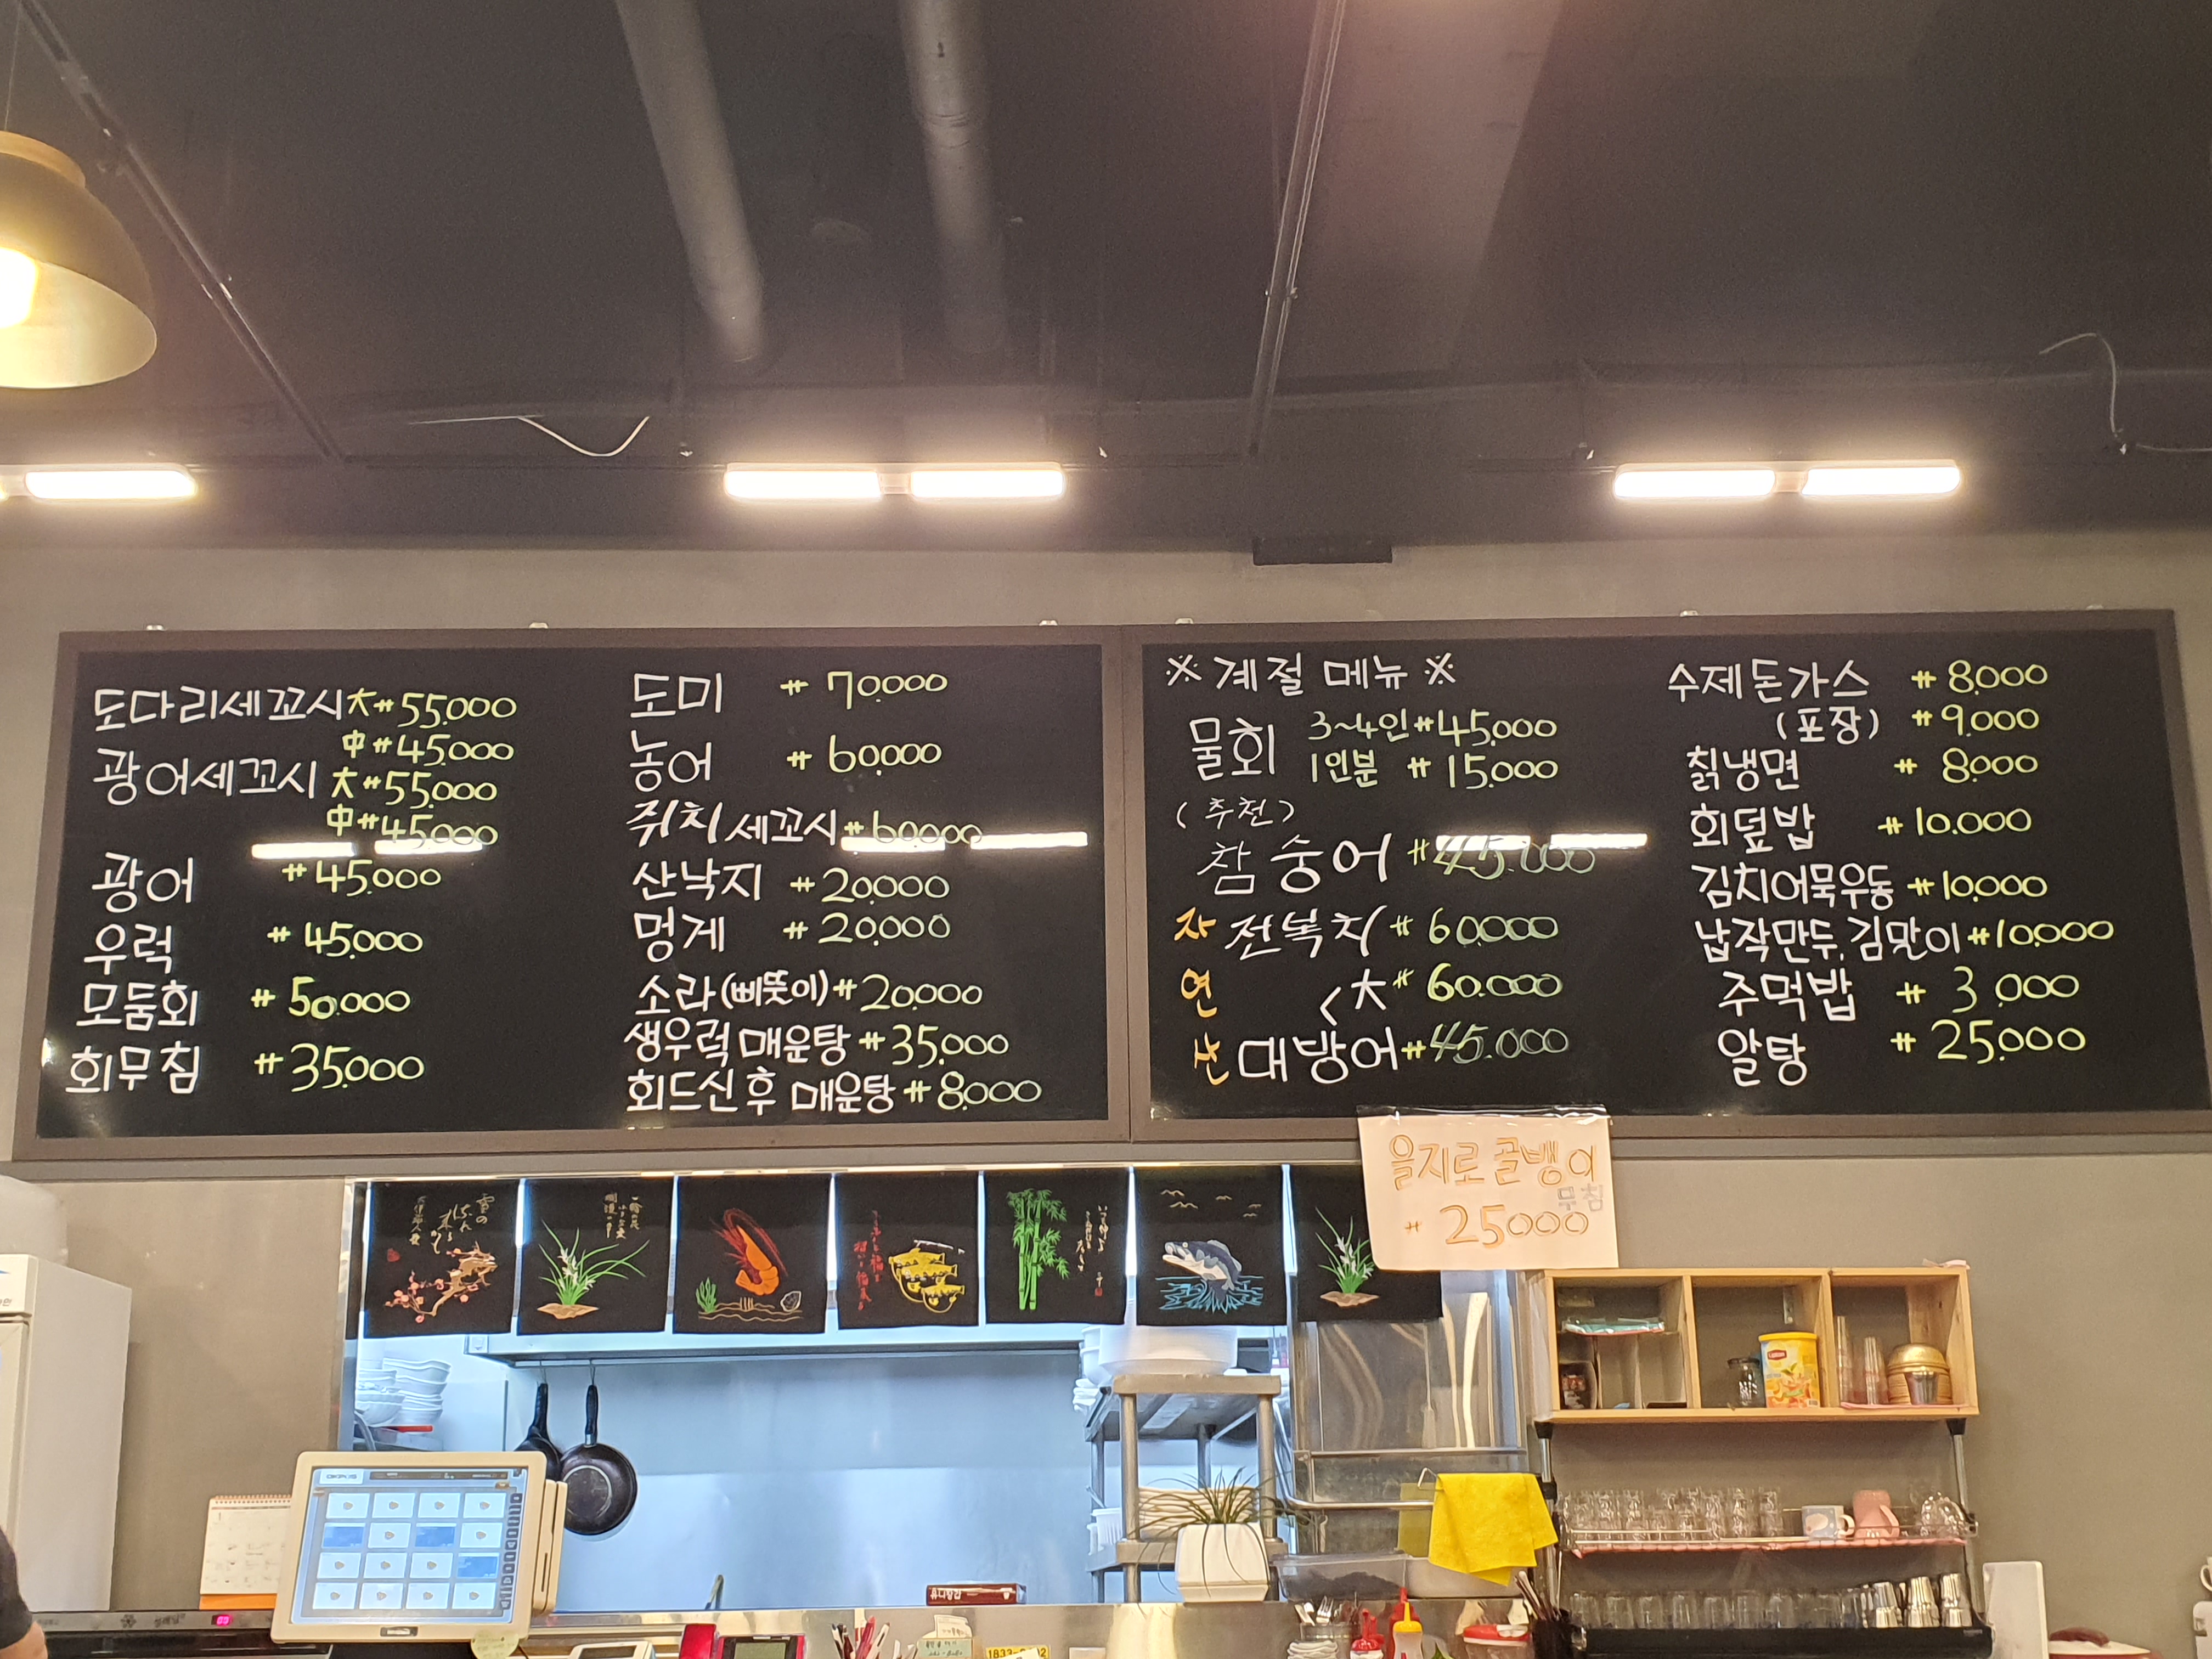 도다리세꼬시 大 ₩55.000
中 ₩45.000
광어세꼬시 大 ₩55.000
中 ₩45.000
광어 ₩45.000
우럭 ₩45.000
모둠회 ₩50.000
회무침 ₩35.000
도미 ₩70.000
농어 ₩60.000
쥐치세꼬시 ₩60.000
산낙지 ₩20.000
멍게 ₩20.000
소라(삐뚯이) ₩20.000
생우럭 매운탕 ₩35.000
회드신후 매운탕 ₩8.000
※ 계절 메뉴 ※
물회 3~4인 ₩45.000
1인분 ₩15.000
(추천)
참숭어 ₩45.000
자연산
전복치 ₩60.000
< 大 ₩60.000
대방어 ₩45.000
수제돈가스 ₩8.000
(포장) ₩9.000
칡냉면 ₩8.000
회덮밥 ₩10.000
김치어묵우동 ₩10.000
납작만두,김말이 ₩10.000
주먹밥 ₩3.000
알탕 ₩25.000
을지로 골뱅이
무침
₩25000
유니랑간
Lipton
OKPOS